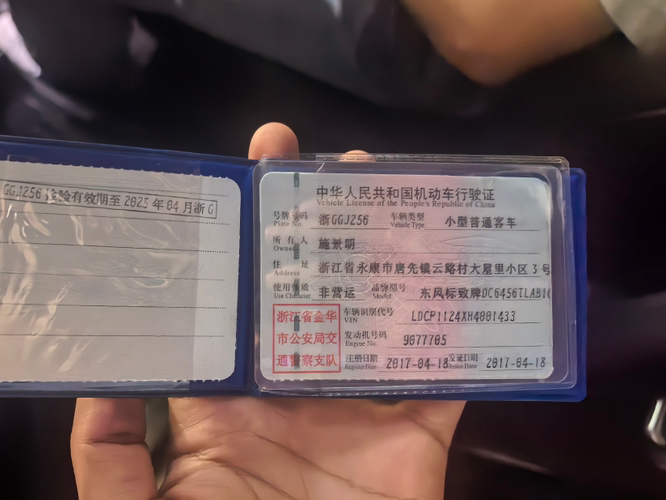 GGJ256 检验有效期至 2025 年 04 月浙 G
中华人民共和国机动车行驶证
Vehicle License of the People's Republic of China
号牌号码 浙GGJ256 车辆类型 小型普通客车
Plate No. Vehicle Type
所有人 施景明
Owner
住址 浙江省永康市唐先镇云路村大屋里小区3号
Address
使用性质 非营运 品牌型号 东风标致牌DC6456TLAB1
Use Character Model
浙江省金华
市公安局交
通警察支队
车辆识别代号 LDCP1124XH4001433
VIN
发动机号码 9077705
Engine No.
注册日期 2017-04-18 发证日期 2017-04-18
Register Date Issue Date